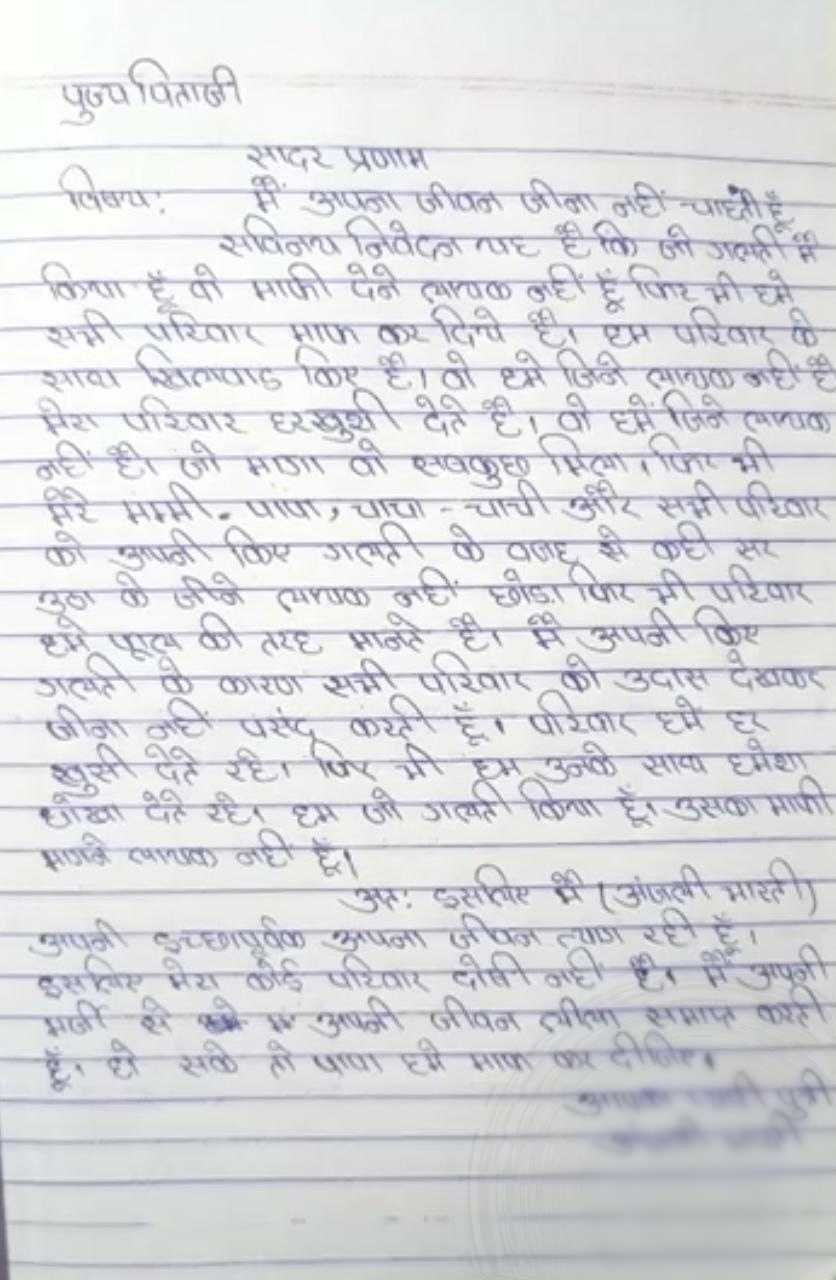 पुज्य पिताजी
सादर प्रणाम
विषय: मैं अपना जीवन जीना नहीं चाहती हूँ
सविनय निवेदन यह है कि जो गलती मैं
किया हूँ वो माफी देने लायक नहीं हूँ फिर भी हमे
सभी परिवार माफ कर दिये है। हम परिवार के
साथ खिलवाड किए है। वो हमे जिने लायक नहीं है
मेरा परिवार हर खुशी देते है। वो हमें जिने लायक
नहीं है। जो मागा वो सबकुछ मिला, फिर भी
मेरे मम्मी - पापा, चाचा - चाची और सभी परिवार
को अपनी किए गलती के वजह से कही सर
उठा के जीने लायक नहीं छोडा फिर भी परिवार
हमे की तरह मानते है। मैं अपनी किए
गलती के कारण सभी परिवार को उदास देखकर
जीना नहीं पसंद करती हूँ। परिवार हमे हर
खुसी देते रहे। फिर भी हम उनके साथ हमेशा
धोखा देते रहे। हम जो गलती किया हूँ। उसका माफी
मागने लायक नहीं हूँ।
अत: इसलिए मैं (अंजली भारती)
अपनी इच्छापूर्वक अपना जीवन त्याग रही हूँ।
इसलिए मेरा कोई परिवार दोषी नहीं है। मैं अपनी
मर्जी से अपनी जीवन लीला समाप्त करती
हूँ। हो सके तो पापा हमे माफ कर दीजिए।
पुत्री